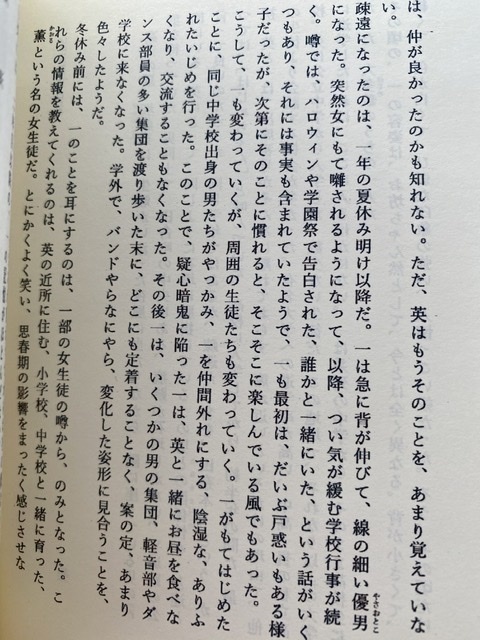 は、仲が良かったのかも知れない。ただ、英はもうそのことを、あまり覚えていな
い。
疎遠になったのは、一年の夏休み明け以降だ。一は急に背が伸びて、線の細い優男
やさおとこ
になった。突然女にもて囃されるようになって、以降、つい気が緩む学校行事が続
く。噂では、ハロウィンや学園祭で告白された、誰かと一緒にいた、という話がいく
つもあり、それには事実も含まれていたようで、一も最初は、だいぶ戸惑いもある様
子だったが、次第にそのことに慣れると、そこそこに楽しんでいる風でもあった。
こうして、一も変わっていくが、周囲の生徒たちも変わっていく。一がもてはじめた
ことに、同じ中学校出身の男たちがやっかみ、一を仲間外れにする、陰湿な、ありふ
れたいじめを行った。このことで、疑心暗鬼に陥った一は、英と一緒にお昼を食べな
くなり、交流することもなくなった。その後一は、いくつかの男の集団、軽音部やダ
ンス部員の多い集団を渡り歩いた末に、どこにも定着することなく、案の定、あまり
学校に来なくなった。学外で、バンドやらなにやら、変化した姿形に見合うことを、
色々したようだ。
冬休み前には、一のことを耳にするのは、一部の女生徒の噂から、のみとなった。こ
れらの情報を教えてくれるのは、英の近所に住む、小学校、中学校と一緒に育った、
薫という名の女生徒だ。とにかくよく笑い、思春期の影響をまったく感じさせな
かおる